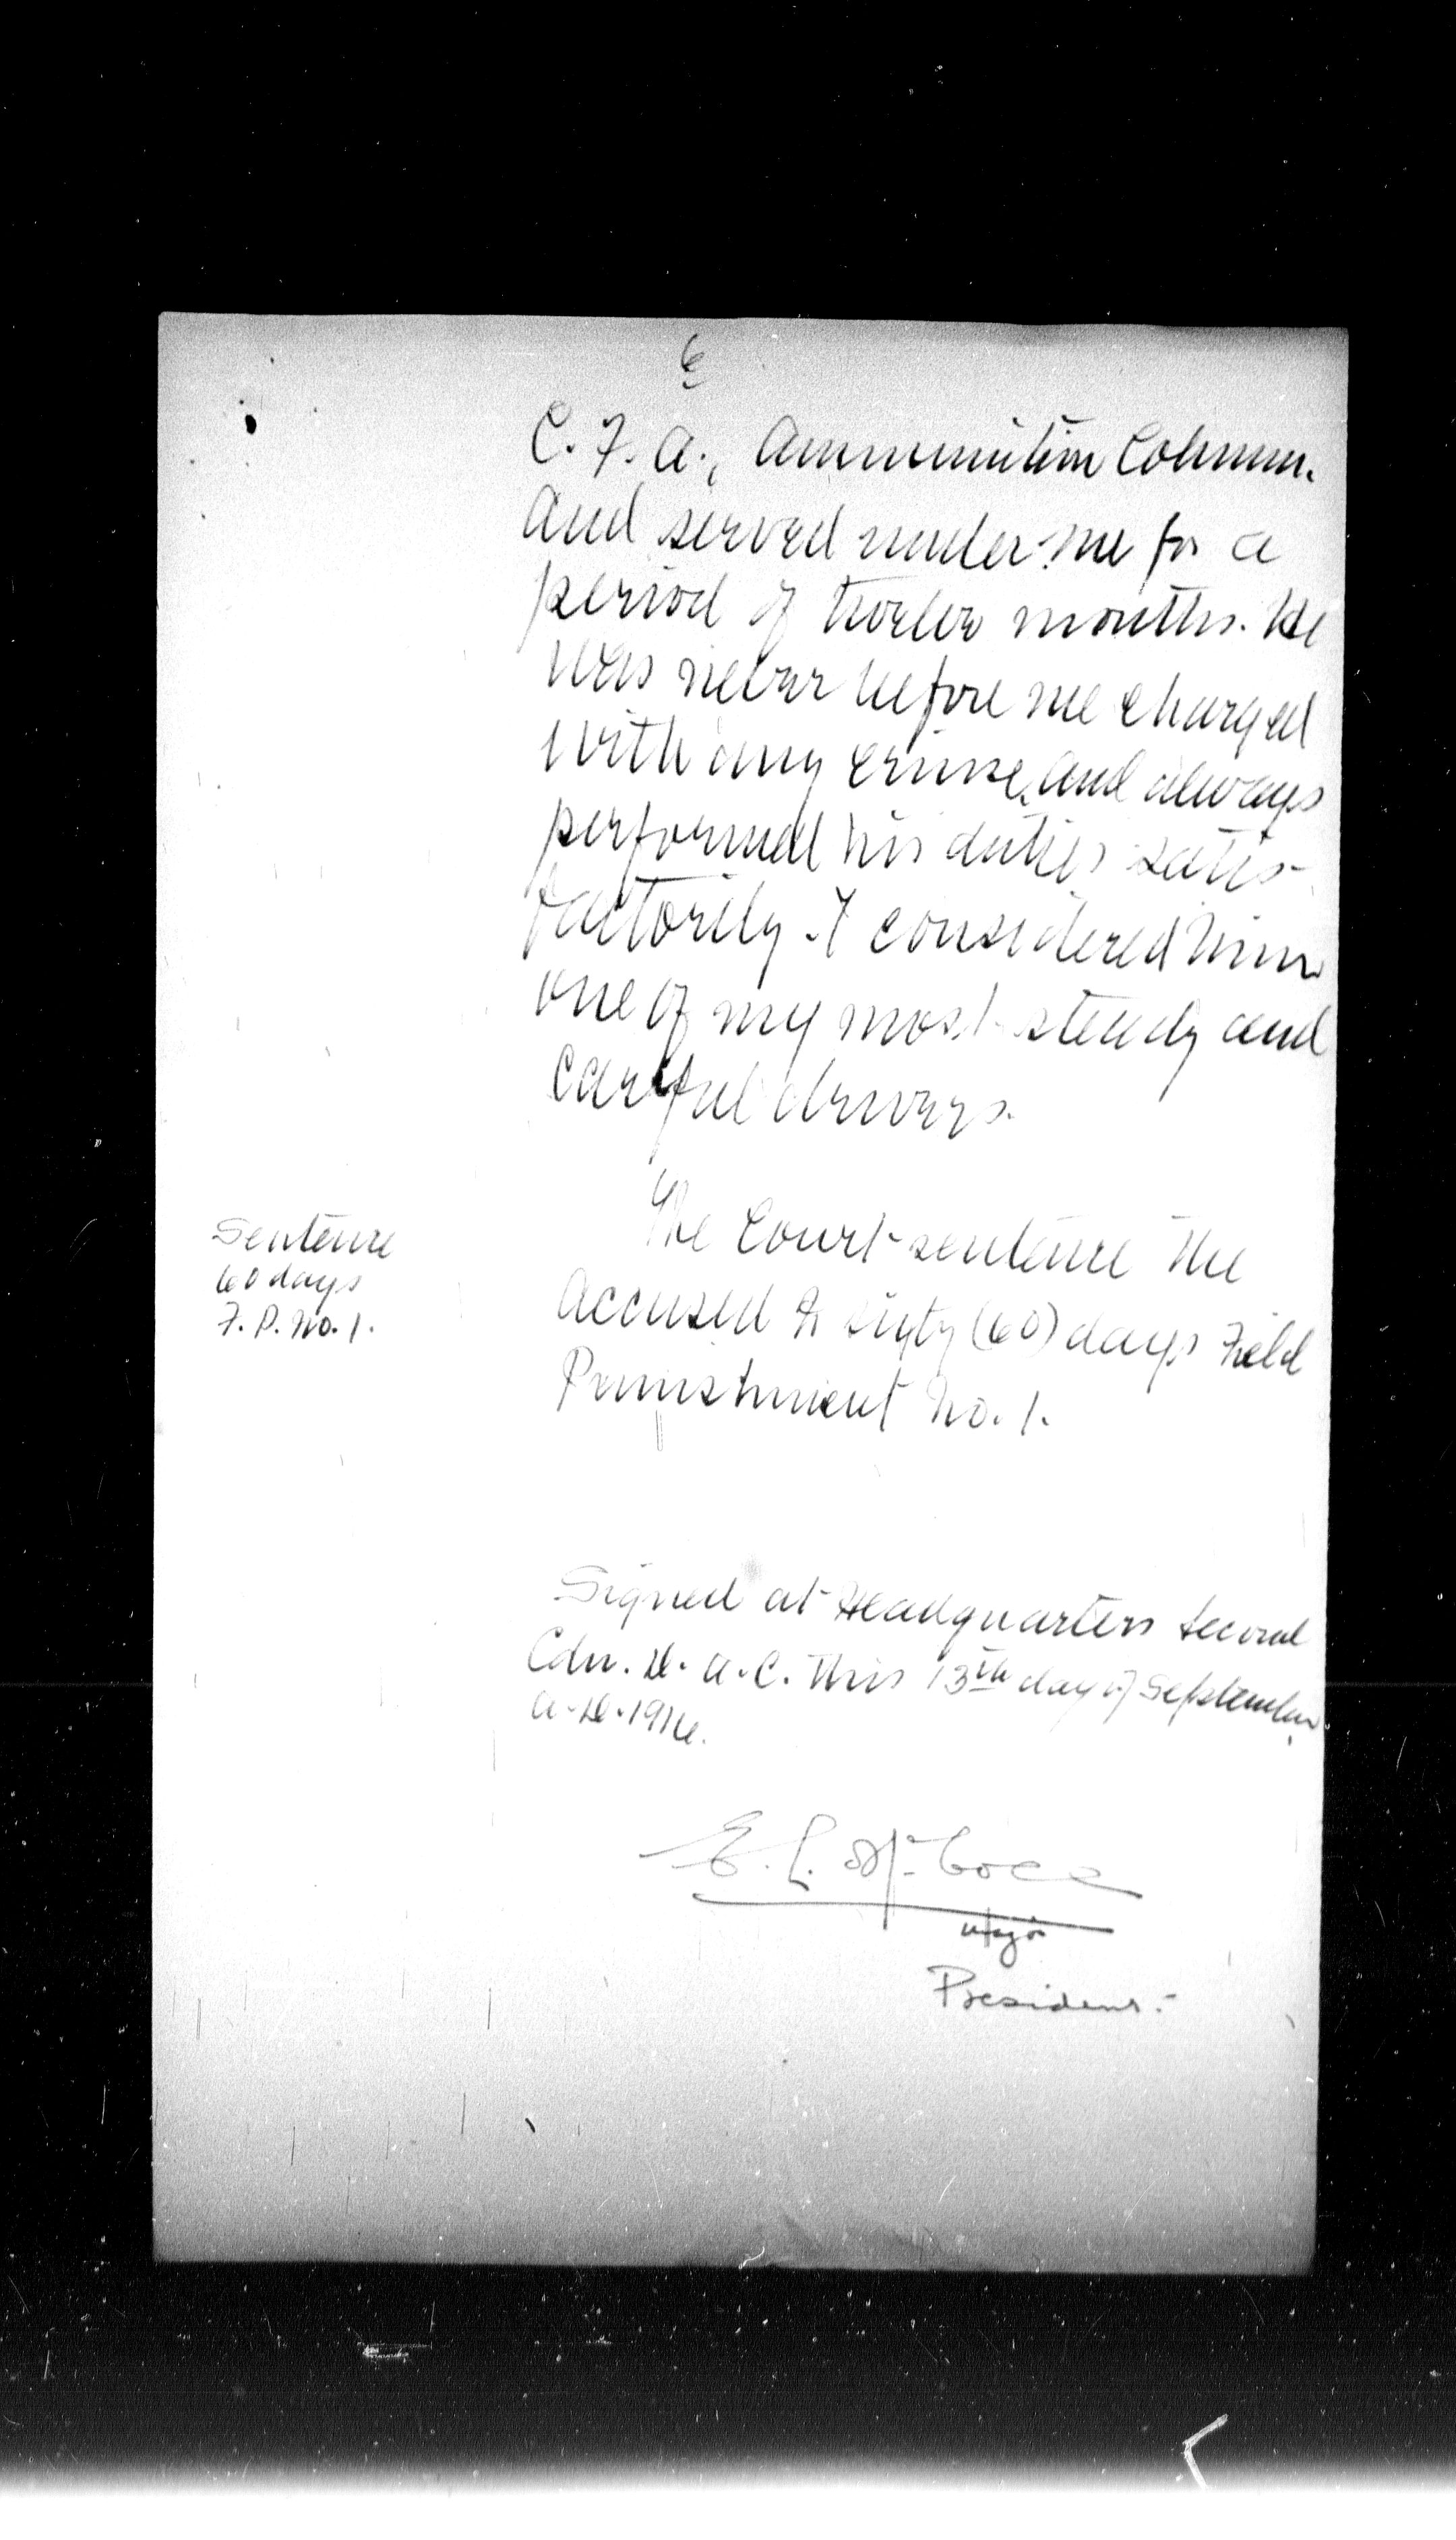 6
C. F. A., Ammunition Column.
And served under me for a
period of twelve months. He
was never before me charged
with any crime, and always
performed his duties satis-
factorily. I considered him
one of my most steady and
careful drivers.
The Court sentence the
Sentence
60 days
F. P. No. 1.
accused to sixty (60) days Field
Punishment No. 1.
Signed at Headquarters Second
Cdn. D. A. C. This 13th day of September
A. D. 1916.
Major
President.